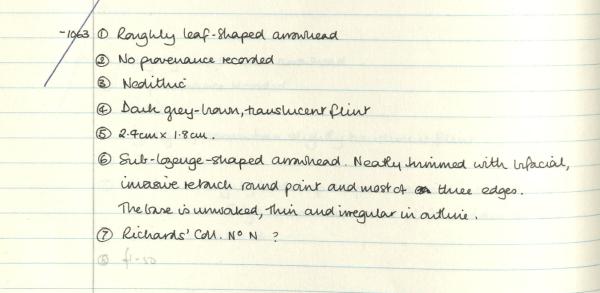 -1063 ① Roughly leaf-shaped arrowhead
② No provenance recorded
③ Neolithic
④ Dark grey-brown, translucent flint
⑤ 2.4cm x 1.8cm.
⑥ Sub-lozenge-shaped arrowhead. Neatly trimmed with bifacial,
invasive retouch round point and most of three edges.
The base is unworked, thin and irregular in outline.
⑦ Richards' Coll. Nº N ?
⑧ f1-50